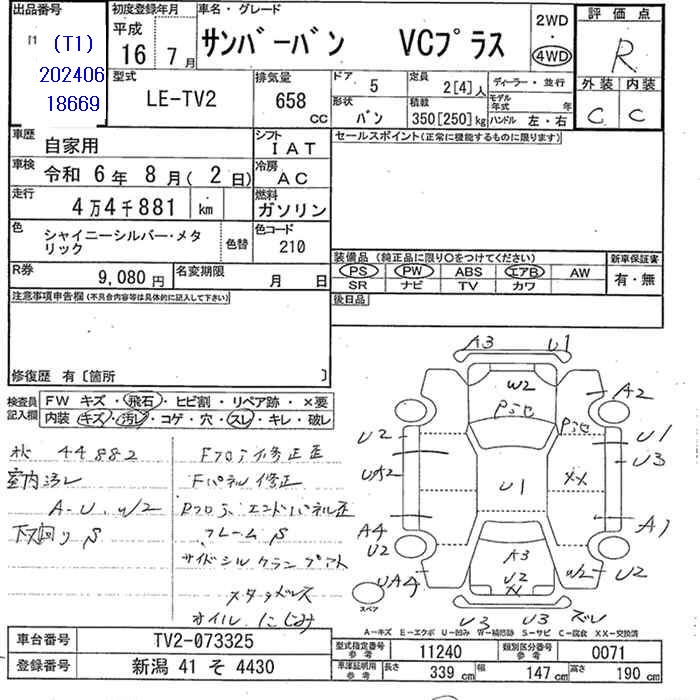 出品番号
(T1)
202406
18669
初度登録年月
平成
16年 7月
車名・グレード
サンバーバン VCプラス
2WD
・
4WD
評価点
R
外装 内装
C C
型式
LE-TV2
排気量
658 CC
ドア 5
定員 2[4]人
ディーラー・並行
形状 バン
積載 350[250]kg
モデル年式 年
ハンドル 左・右
車歴 自家用
シフト IAT
セールスポイント(正常に機能するものに限ります)
車検 令和 6年 8月( 2日)
冷房 AC
走行 4万4千881 km
燃料 ガソリン
色 シャイニーシルバー・メタリック
色替
色コード 210
装備品 (純正品に限り○をつけてください)
新車保証書
PS PW ABS エアB AW
SR ナビ TV カワ
有・無
R券 9,080円
名変期限 月 日
後日品
注意事項申告欄(不具合内容等は具体的に記入して下さい)
修復歴 有〔箇所 〕
検査員記入欄
FW キズ・飛石・ヒビ割・リペア跡・×要
内装・キズ・汚レ・コゲ・穴・スレ・キレ・破レ
44882
室内汚レ
A-U、W2
下廻りS
Fフロア修正歪
Fパネル修正
Rフロア、エンドパネル歪
フレームS
オイルにじみ
A3 U1
W2
A2
U2
U1
U3
UA2
U1
XX
A4
U2
A1
A3
U2
X
W2
U2
UA4
スペア
U3 U3 ズレ
A-キズ E-エクボ U-凹み W-補修跡 S-サビ C-腐食 XX-交換済
車台番号 TV2-073325
登録番号 新潟 41 そ 4430
型式指定番号 参考 11240
類別区分番号 参考 0071
車庫証明用 参考 長さ 339 cm 幅 147 cm 高さ 190 cm